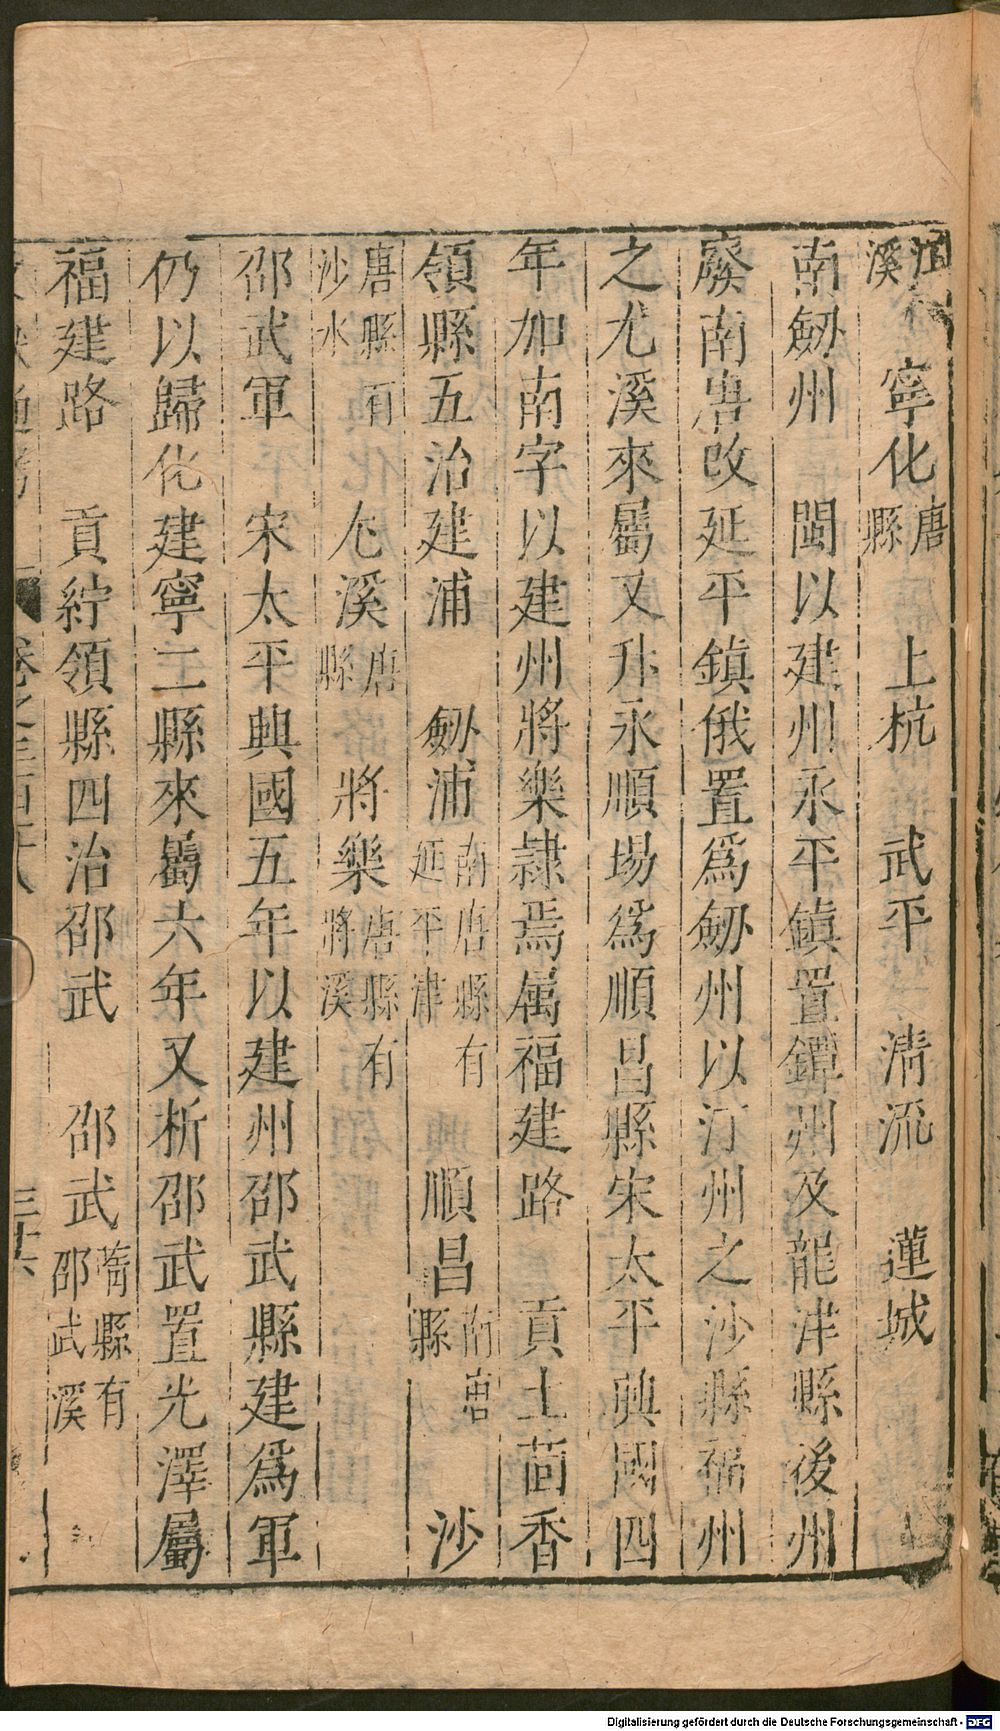 溪 寧化唐縣 上杭 武平 清流 蓮城
南劒州 閩以建州永平鎮置鐔州及龍津縣後州
廢南唐改延平鎮俄置爲劒州以汀州之沙縣福州
之尤溪來屬又升永順場爲順昌縣宋太平興國四
年加南字以建州將樂隷焉属福建路 貢土茴香
領縣五治建浦 劒浦南唐縣有延平津 順昌南唐縣 沙
唐縣有沙水 尤溪唐縣 將樂唐縣有將溪
邵武軍 宋太平興國五年以建州邵武縣建爲軍
仍以歸化建寧二縣來屬六年又析邵武置光澤屬
福建路 貢紵領縣四治邵武 邵武隋縣有邵武溪
Digitalisierung gefördert durch die Deutsche Forschungsgemeinschaft - DFG